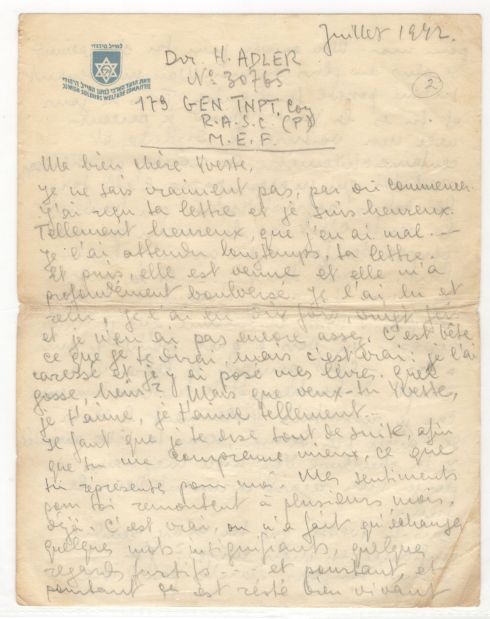 Juillet 1942.
JEWISH SOLDIERS WELFARE COMMITTEE
Dvr. H. ADLER
N° 30765
2
179 GEN TNPT. Coy
R.A.S.C. (P)
M.E.F.
Ma bien chère Yvette,
je ne sais vraiment pas, par où commencer.
J'ai reçu ta lettre et je suis heureux.
Tellement heureux, que j'en ai mal.—
Je l'ai attendu longtemps, ta lettre.
Et puis, elle est venue et elle m'a
profondément boulversé. Je l'ai lu et
relu, je l'ai lu dix fois, vingt fois
et je n'en ai pas encore assez. C'est bête
ce que je te dirai, mais c'est vrai: je l'ai
caressé et j'y ai posé mes lèvres. Quel
gosse, hein? Mais que veux-tu Yvette,
je t'aime, je t'aime tellement...
Il faut que je te dise tout de suite, afin
que tu me comprenne mieux, ce que
tu représente pour moi. Mes sentiments
pour toi remontent à plusieurs mois,
déjà. C'est vrai, on n'a fait qu'échanger
quelques mots insignifiants, quelques
regards furtifs... et pourtant, et
pourtant ça est résté bien vivant